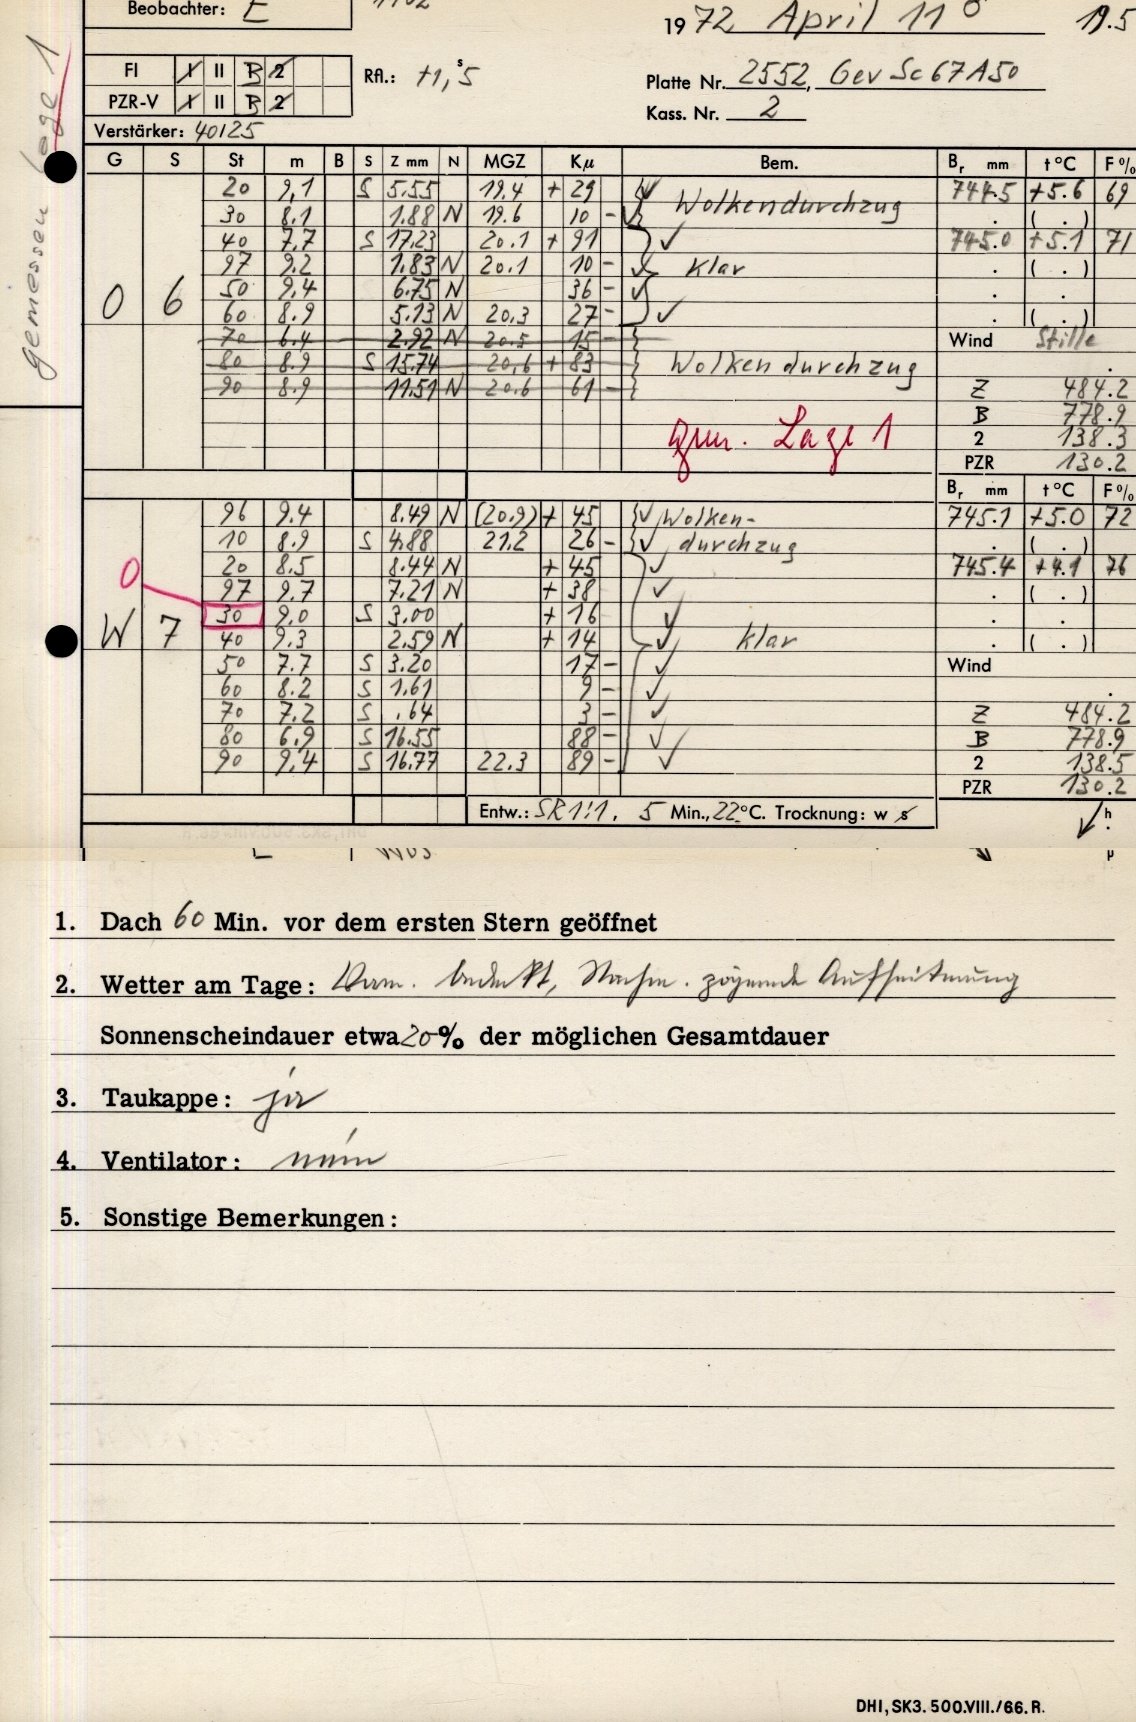 Beobachter: E
1972 April 11 19.5
gemessen Lage 1
FI I II B 2 Rfl.: +1,ˢ5
PZR-V I II B 2
Platte Nr. 2552, Gev Sc67A50
Kass. Nr. 2
Verstärker: 40125
G S St m B S Z mm N MGZ Kμ Bem. Bᵣ mm t °C F %
20 9,1 S 5.55 19.4 + 29 Wolkendurchzug 744.5 +5.6 69
30 8.1 1.88 N 19.6 10 - . ( . )
40 7,7 S 17.23 20.1 + 91 745.0 +5.1 71
97 9.2 1.83 N 20.1 10 - klar . ( . )
O 6 50 9,4 6.75 N 36 - . .
60 8.9 5.13 N 20.3 27 - . ( . )
70 6.4 2.92 N 20.5 15 - Wind Stille
80 8.9 S 15.74 20,6 + 83 Wolkendurchzug .
90 8.9 11.51 N 20.6 61 - Z 484.2
B 778.9
Lage 1 2 138.3
PZR 130.2
Bᵣ mm t °C F %
96 9.4 8.49 N (20.9) + 45 Wolken- 745.1 +5.0 72
10 8.9 S 4.88 21.2 26 - durchzug . ( . )
O 20 8.5 8.44 N + 45 745.4 +4.1 76
97 9.7 7.21 N + 38 . ( . )
30 9.0 S 3.00 + 16 . .
W 7 40 9.3 2.59 N + 14 klar . ( . )
50 7.7 S 3.20 17 - Wind
60 8.2 S 1.61 9 - .
70 7.2 S .64 3 - Z 484.2
80 6.9 S 16.55 88 - B 778.9
90 9,4 S 16.77 22.3 89 - 2 138.5
PZR 130.2
Entw.: SR 1:1, 5 Min., 22 °C. Trocknung: w s
h
μ
1. Dach 60 Min. vor dem ersten Stern geöffnet
2. Wetter am Tage: Vorm. bedeckt, Nachm. zögernde Aufheiterung
Sonnenscheindauer etwa 20 % der möglichen Gesamtdauer
3. Taukappe: ja
4. Ventilator: nein
5. Sonstige Bemerkungen:
DHI, SK3. 500.VIII./66. R.